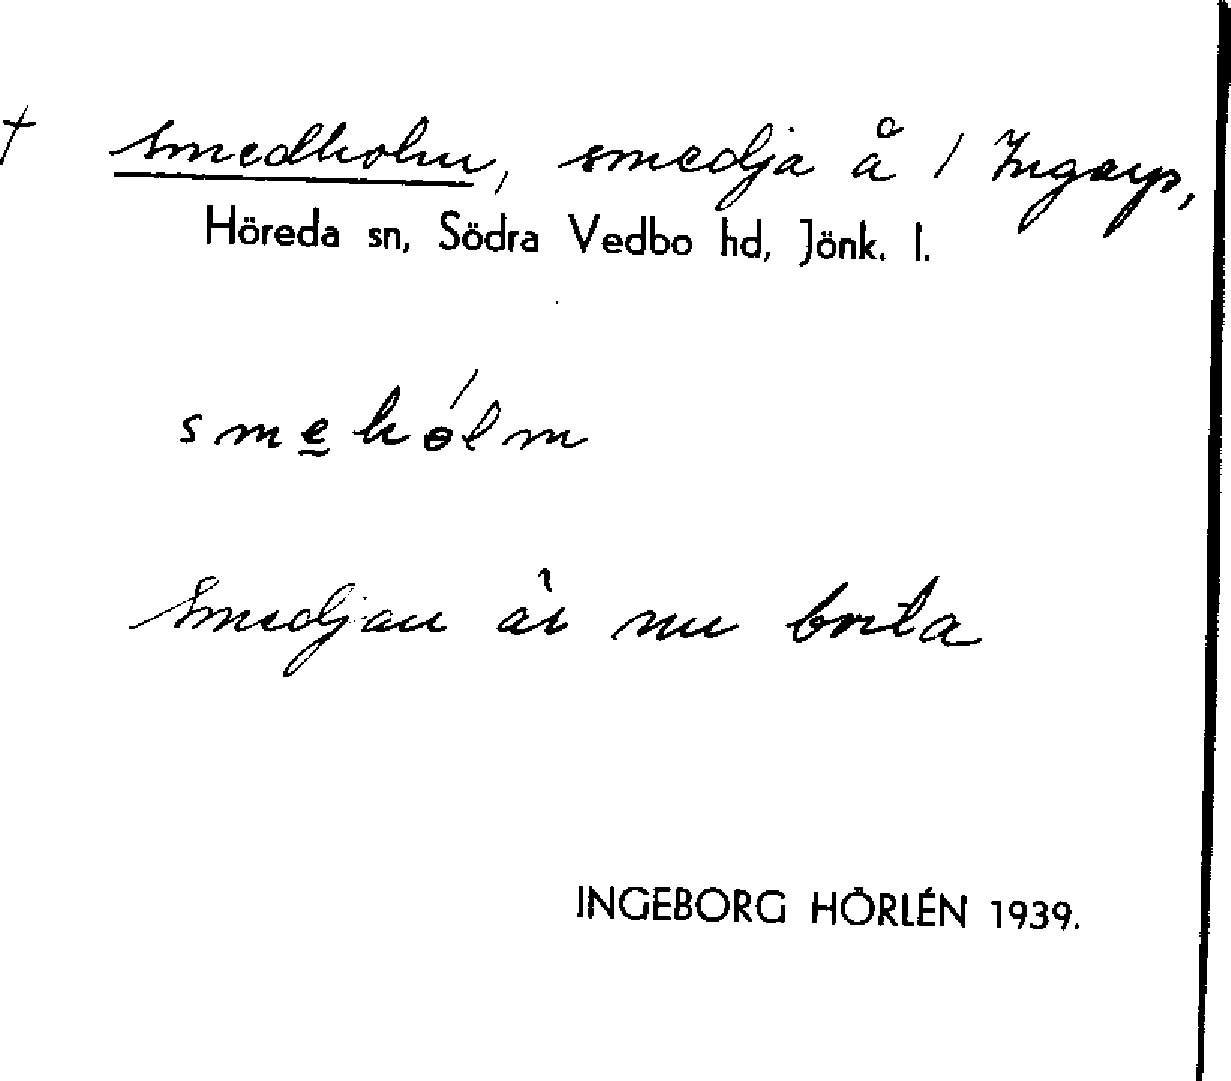 † Smedholm, smedja å 1 Ingarp,
Höreda sn, Södra Vedbo hd, Jönk. l.
smehólm
Smedjan är nu borta
INGEBORG HÖRLÉN 1939.